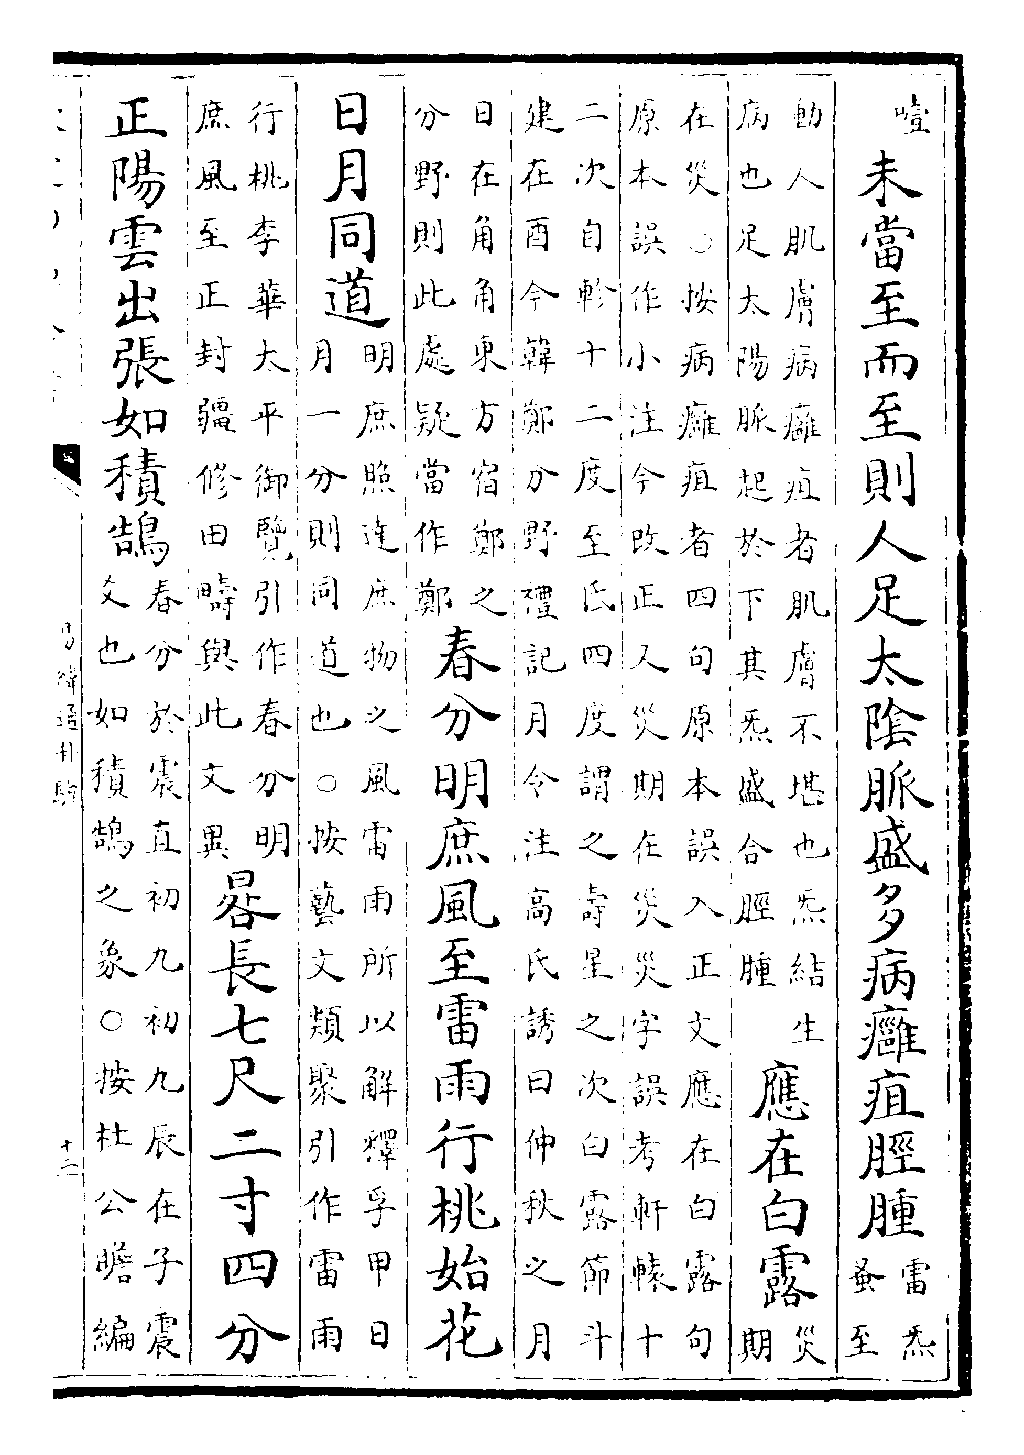 噎未當至而至則人足太陰脈盛多病癰疽脛腫雷炁
蚤至
動人肌膚病癰疽者肌膚不堪也炁結生
病也足太陽脈起於下其炁盛合脛腫
應在白露災
期
在災○按病癰疽者四句原本誤入正文應在白露句
原本誤作小注今改正又災期在災災字誤考軒轅十
二次自軫十二度至氐四度謂之壽星之次白露節斗
建在酉今韓鄭分野禮記月令注高氏誘曰仲秋之月
日在角角東方宿鄭之
分野則此處疑當作鄭
春分明庶風至雷雨行桃始花
日月同道明庶照達庶物之風雷雨所以解釋孚甲日
月一分則同道也○按藝文類聚引作雷雨
行桃李華太平御覽引作春分明
庶風至正封疆修田疇與此文異
晷長七尺二寸四分
正陽雲出張如積鵠春分於震直初九初九辰在子震
爻也如積鵠之象○按杜公瞻編
易緯通卦驗
十二